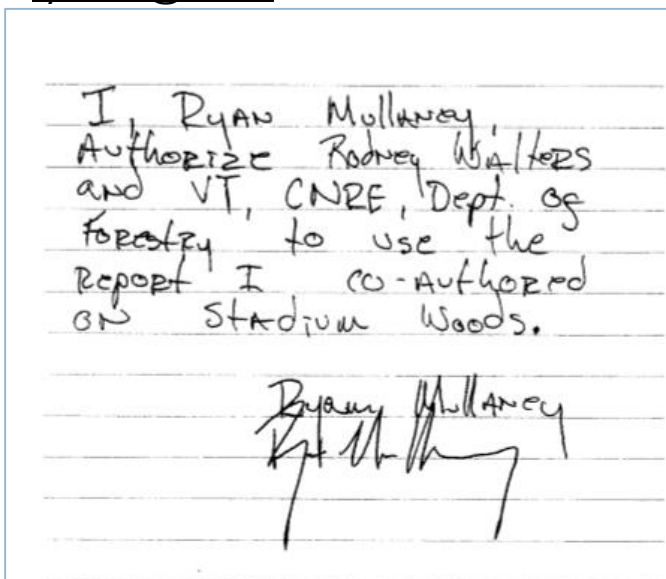 I, Ryan Mullaney,
Authorize Rodney Walters
and VT, CNRE, Dept. of
Forestry to use the
Report I co-Authored
on Stadium Woods.
Ryan Mullaney